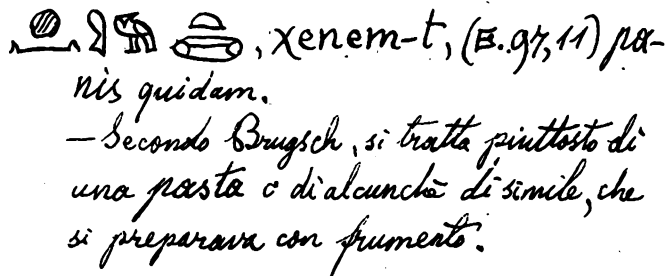 , χenem-t, (E. 97, 11) pa-
nis quidam.
— Secondo Brugsch, si tratta piuttosto di
una pasta o di alcunchè di simile, che
si preparava con frumento.